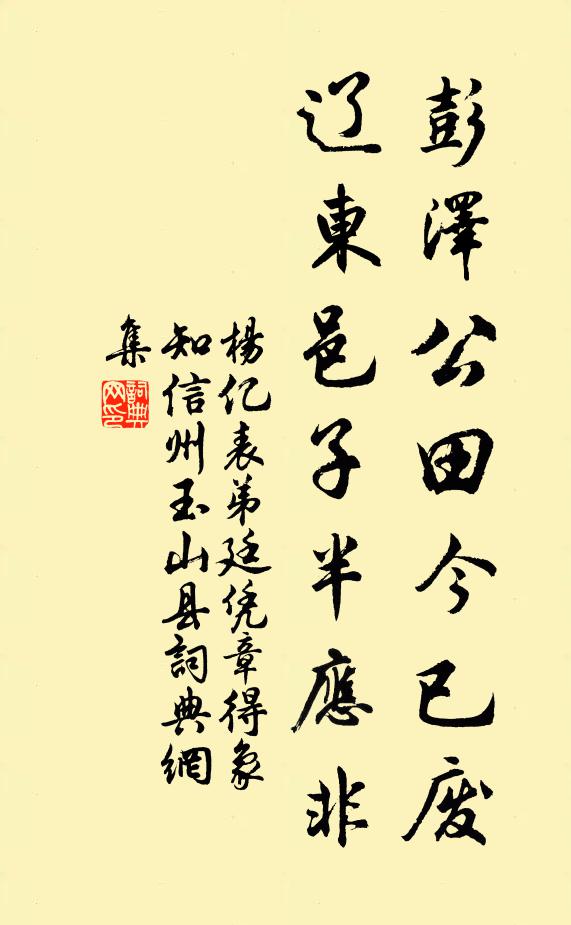 彭澤公田今已废
辽東邑子半應非
楊亿表弟廷凭章得象
知信州玉山县詞典網
集
詞典網印